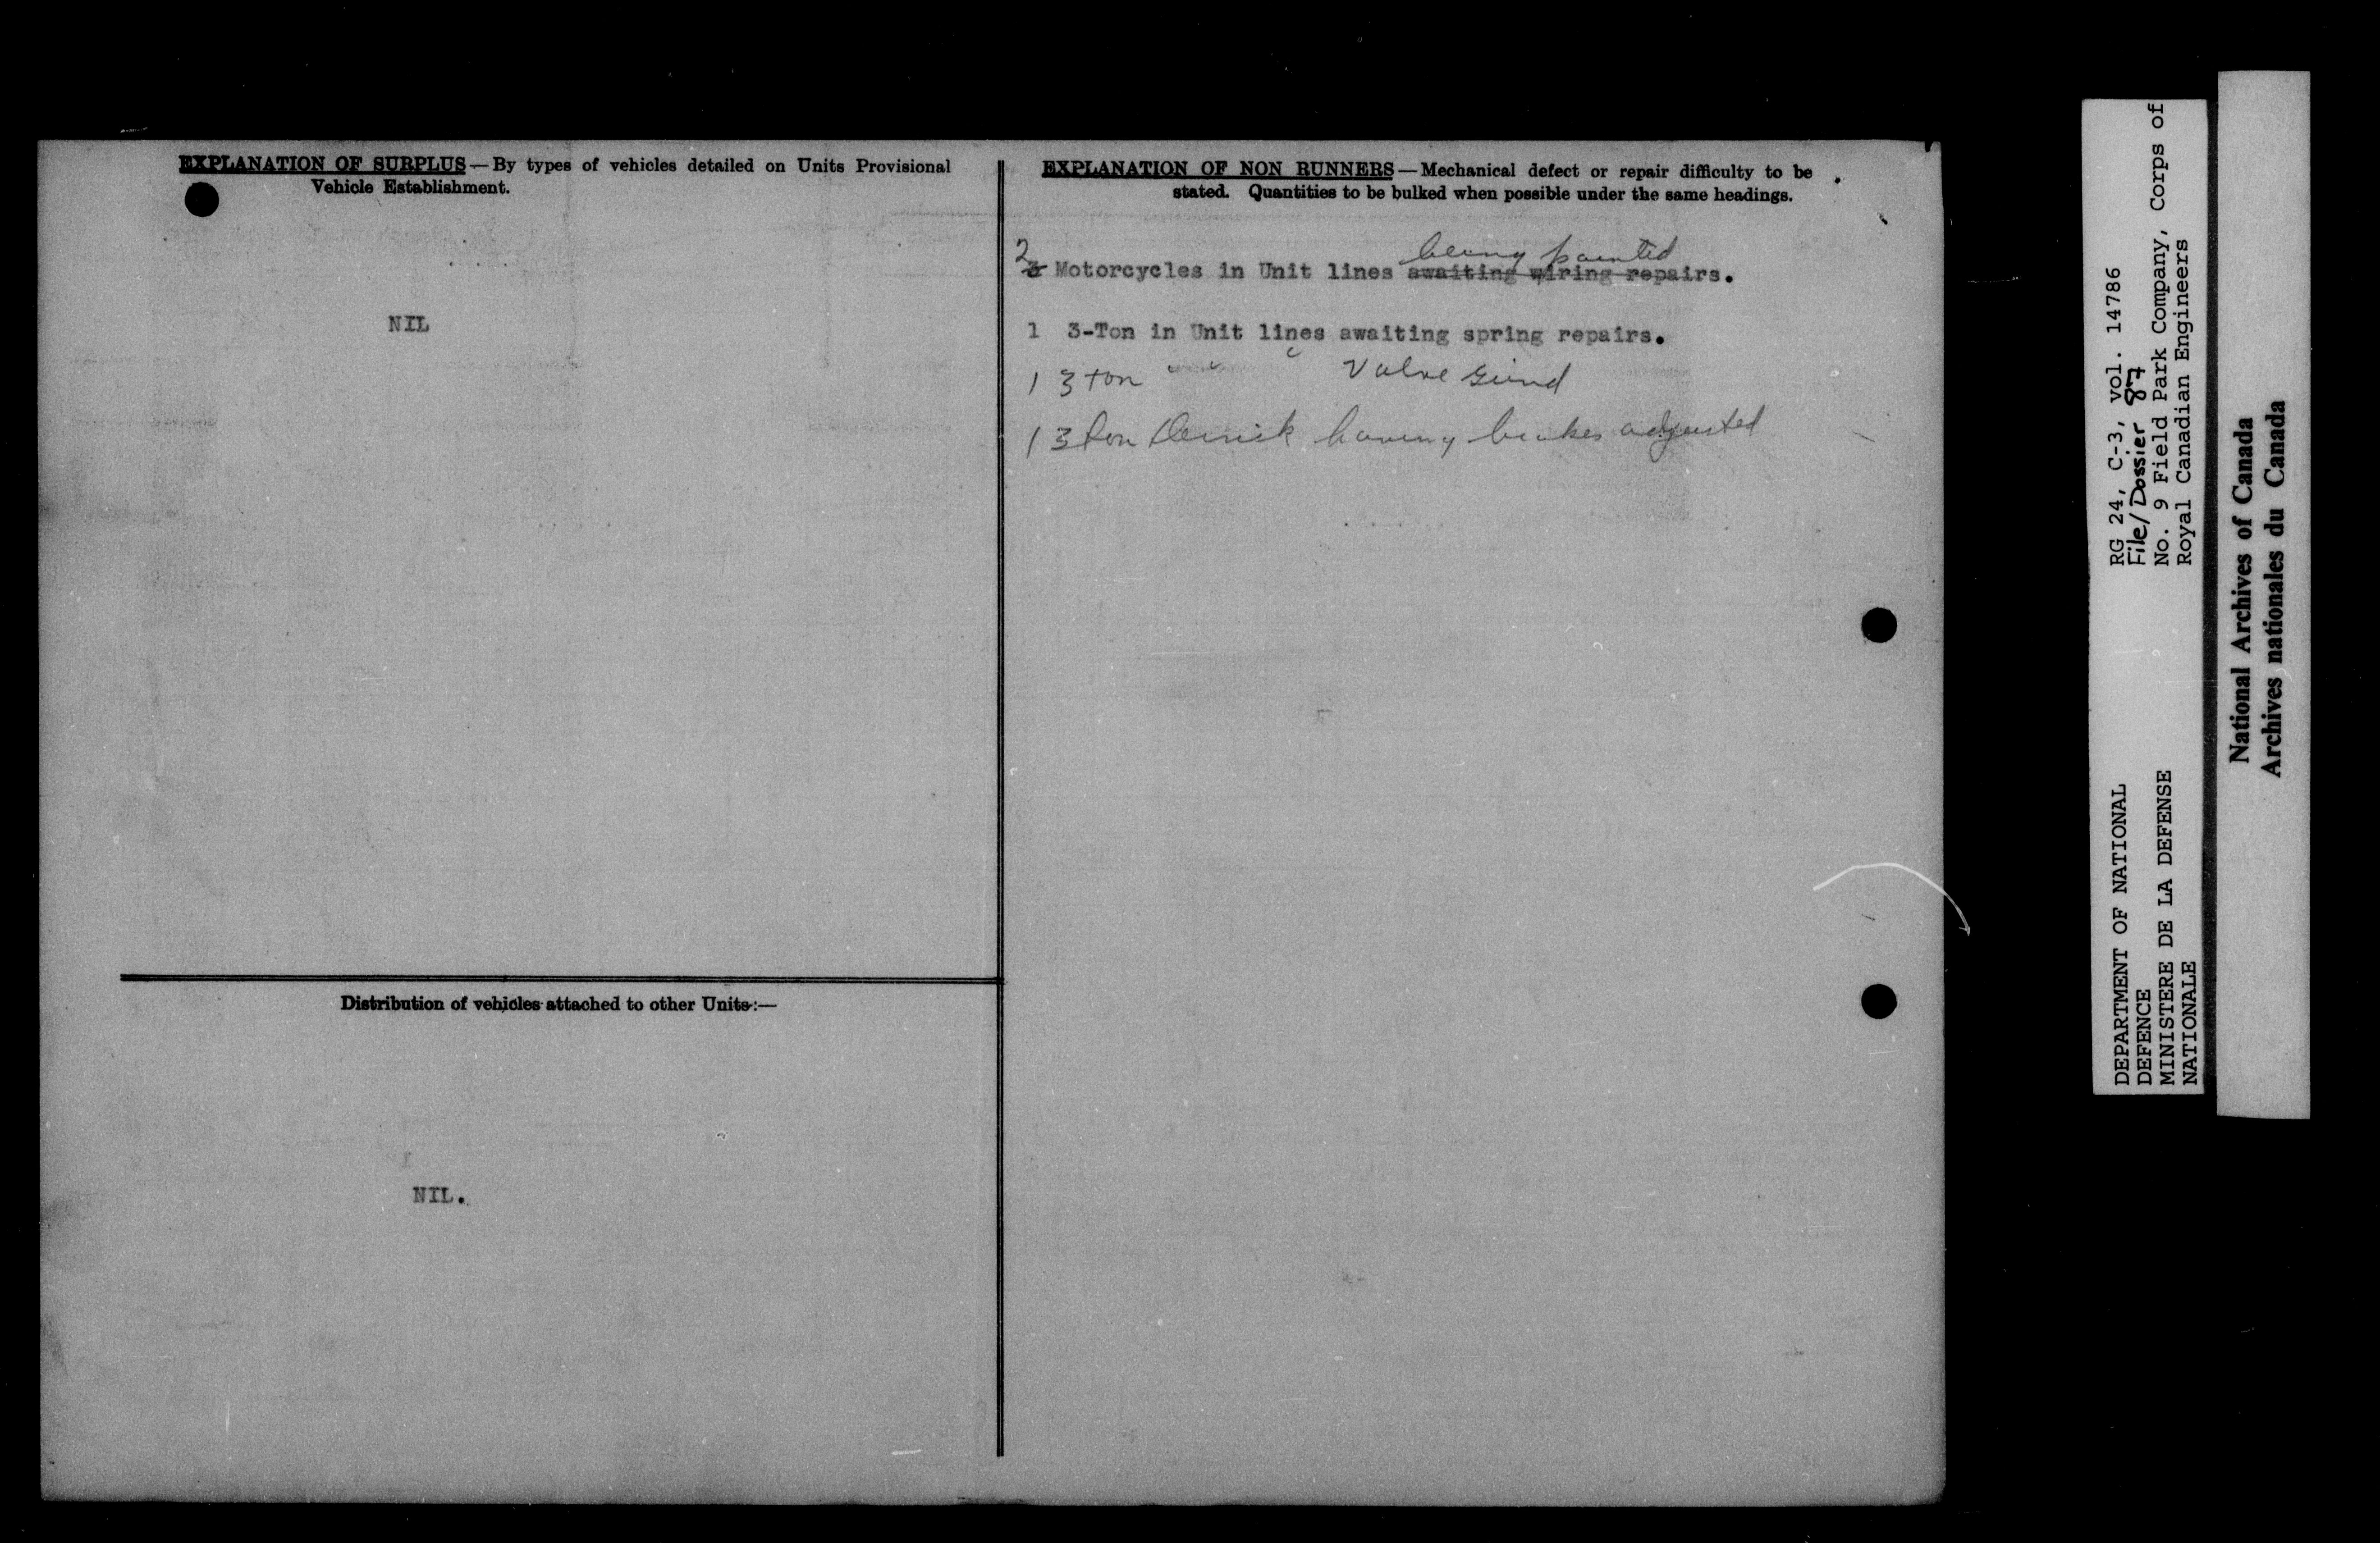 EXPLANATION OF SURPLUS—By types of vehicles detailed on Units Provisional
Vehicle Establishment.
NIL
Distribution of vehicles attached to other Units:—
NIL.
EXPLANATION OF NON RUNNERS—Mechanical defect or repair difficulty to be
stated. Quantities to be bulked when possible under the same headings.
being painted
2 Motorcycles in Unit lines awaiting wiring repairs.
1 3-Ton in Unit lines awaiting spring repairs.
1 3 ton " " " Valve Grind
1 3 ton Derrick having brakes adjusted
RG 24, C-3, vol. 14786
File/Dossier 87
No. 9 Field Park Company, Corps of
Royal Canadian Engineers
DEPARTMENT OF NATIONAL
DEFENCE
MINISTERE DE LA DEFENSE
NATIONALE
National Archives of Canada
Archives nationales du Canada